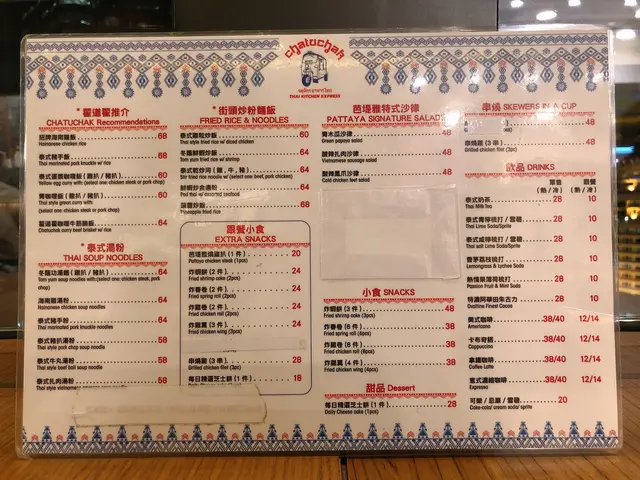 chatuchak
THAI KITCHEN EXPRESS
* 翟道翟推介
CHATUCHAK Recommendations
招牌海南雞飯 68
Hainanese chicken rice
泰式豬手飯 68
Thai marinated pork knuckle w/ rice
泰式蛋黃咖喱飯 ( 雞扒 / 豬扒 ) 64
Yellow egg curry with (select one chicken steak or pork chop)
青咖喱飯 ( 雞扒 / 豬扒 ) 64
Thai style green curry with
(Select one chicken steak or pork chop)
翟道翟咖喱牛筋腩飯 68
Chatuchak curry beef brisket w/ rice
* 泰式湯粉
THAI SOUP NOODLES
冬蔭功湯檬 ( 雞扒 / 豬扒 ) 64
Tom yum soup noodles with:(select one chicken steak, pork chop)
海南雞湯粉 64
Hainanese chicken soup noodles
泰式豬手粉 64
Thai marinated pork knuckle noodles
泰式豬扒湯粉 58
Thai style pork chop soup noodle
泰式牛丸湯粉 58
Thai style beef ball soup noodle
泰式扎肉湯粉 58
Thai style vietnamese
* 街頭炒粉麵飯
FRIED RICE & NOODLES
泰式雞粒炒飯 60
Thai style fried rice w/ diced chicken
冬蔭鮮蝦炒飯 64
Tom yum fried rice w/ shrimp
泰式乾炒河 ( 雞 , 牛 , 豬 ) 64
鮮蝦炒金邊粉 64
Pad Thai w/ assorted seafood
菠蘿炒飯 60
Pineapple fried rice
跟餐小食
EXTRA SNACKS
芭堤雅燒雞扒 (1 件 ) 20
Pattaya chicken steak (1pcs)
炸蝦餅 (2 件 ) 24
Fried shrimp cake (2pcs)
炸春卷 (2 件 ) 24
Fried spring roll (2pcs)
炸雞卷 (2 件 ) 24
Fried chicken roll (2pcs)
炸雞翼 (3 件 ) 24
Fried chicken wing (3pcs)
串燒雞 (3 串 ) 28
Grilled chicken filet (3pc)
每日精選芝士餅 (1 件 ) 18
Daily Cheese cake (1pc)
芭堤雅特式沙律
PATTAYA SIGNATURE SALADS
青木瓜沙律 48
Green papaya salad
酸辣扎肉沙律 48
Vietnamese sausage salad
酸辣鳳爪沙律 48
Cold chicken feet salad
小食 SNACKS
炸蝦餅 (3 件 ) 48
Fried shrimp cake (3pcs)
炸春卷 (6 件 ) 38
Fried spring roll (6pcs)
炸雞卷 (6 件 ) 38
Fried chicken roll (6pcs)
炸雞翼 (4 件 ) 38
Fried chicken wing (4pcs)
甜品 Dessert
每日精選芝士餅 (1 件 ) 28
Daily Cheese cake (1pc)
串燒 SKEWERS IN A CUP
48
串燒雞 (3 串 ) 48
Grilled chicken filet (3pc)
飲品 DRINKS
單叫 跟餐
(熱 / 冷) (熱 / 冷)
泰式奶茶 28 10
Thai Milk Tea
泰式青檸梳打 / 雪碧 28 10
Thai Lime Soda/Sprite
泰式咸檸梳打 / 雪碧 28 10
Thai salt Lime soda/Sprite
香茅荔枝梳打 28 10
Lemongrass & Lychee Soda
熱情果薄荷梳打 28 10
Passion Fruit & Mint Soda
特濃阿華田朱古力 28 10
Ovaltine Finest Cocoa
美式咖啡 38/40 12/14
Americano
卡布奇諾 38/40 12/14
Cappuccino
拿鐵咖啡 38/40 12/14
Coffee Latte
意式濃縮咖啡 38/40 12/14
Espresso
可樂 / 忌廉 / 雪碧 20
Coke-cola/ cream soda/ sprite